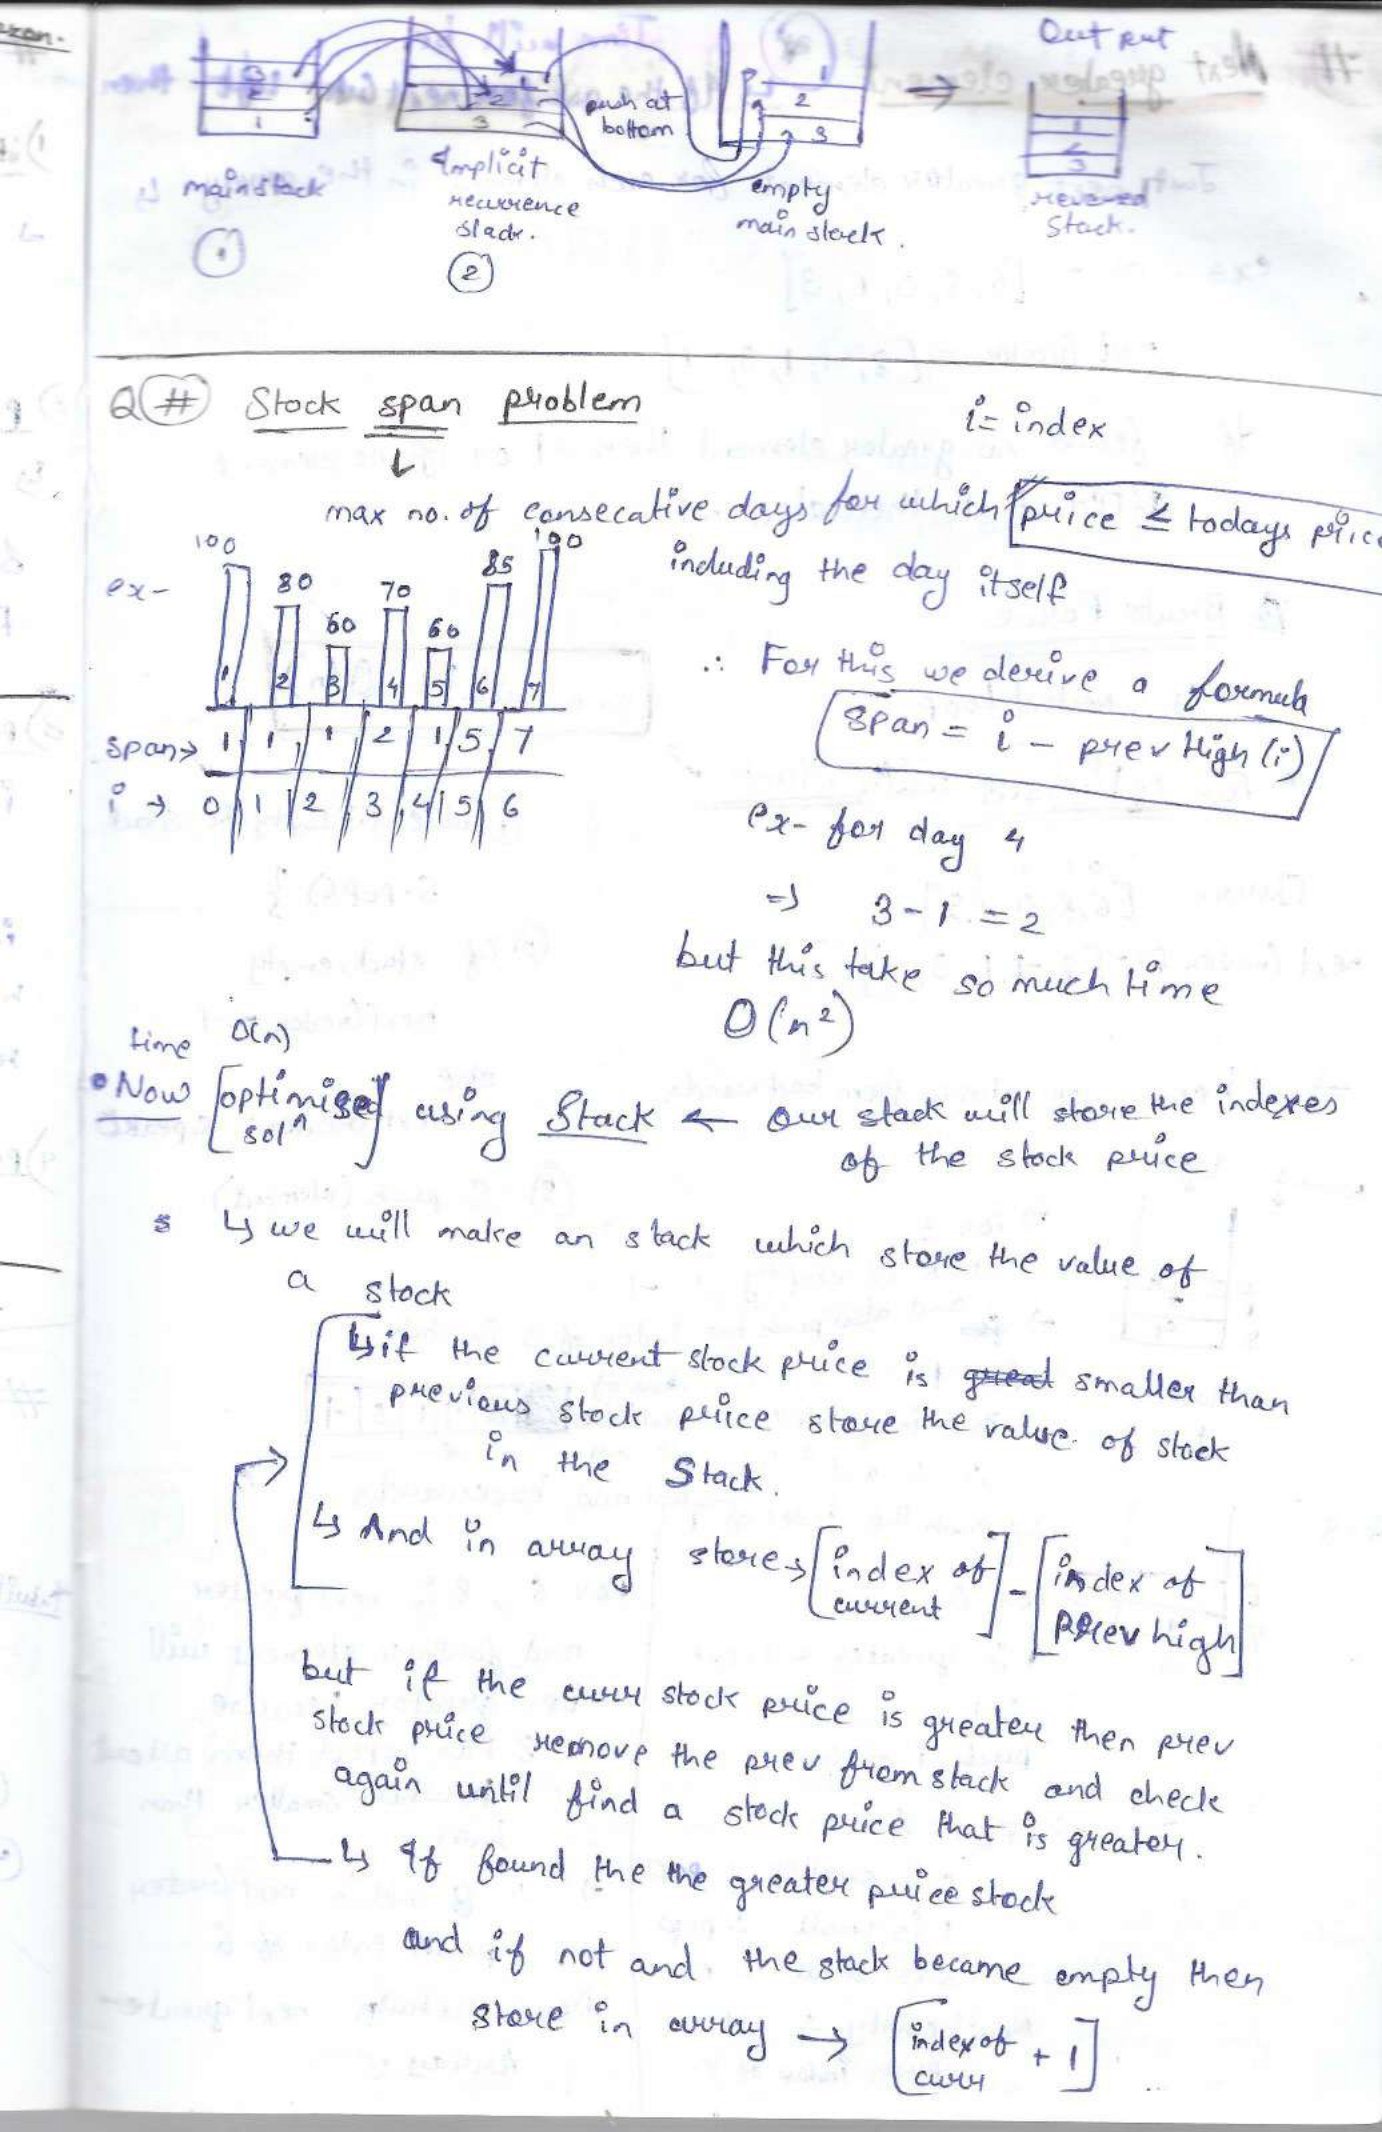 Output
3
2
1
2
3
push at
bottom
1
2
3
1
2
3
main stack
Implicit
recurrence
stack.
empty
main stack.
reversed
Stack.
1
2
Q # Stock span problem
i = index
max no. of consecative days for which price ≤ todays price
including the day itself
ex-
100 80 60 70 60 85 100
1 2 3 4 5 6 7
span → 1 1 1 2 1 5 7
i → 0 1 2 3 4 5 6
∴ For this we derive a formula
span = i - prev High (i)
ex- for day 4
⇒ 3 - 1 = 2
but this take so much time
O(n²)
time O(n)
• Now [optimised solⁿ] using Stack ← our stack will store the indexes
of the stock price
s ↳ we will make an stack which store the value of
a stock
↳ if the current stock price is great smaller than
previous stock price store the value of stock
in the Stack.
↳ And in array store → [index of current] - [index of prev high]
but if the curr stock price is greater then prev
stock price remove the prev from stack and check
again until find a stock price that is greater.
↳ If found the the greater price stock
and if not and the stack became empty then
store in array → [index of curr + 1]